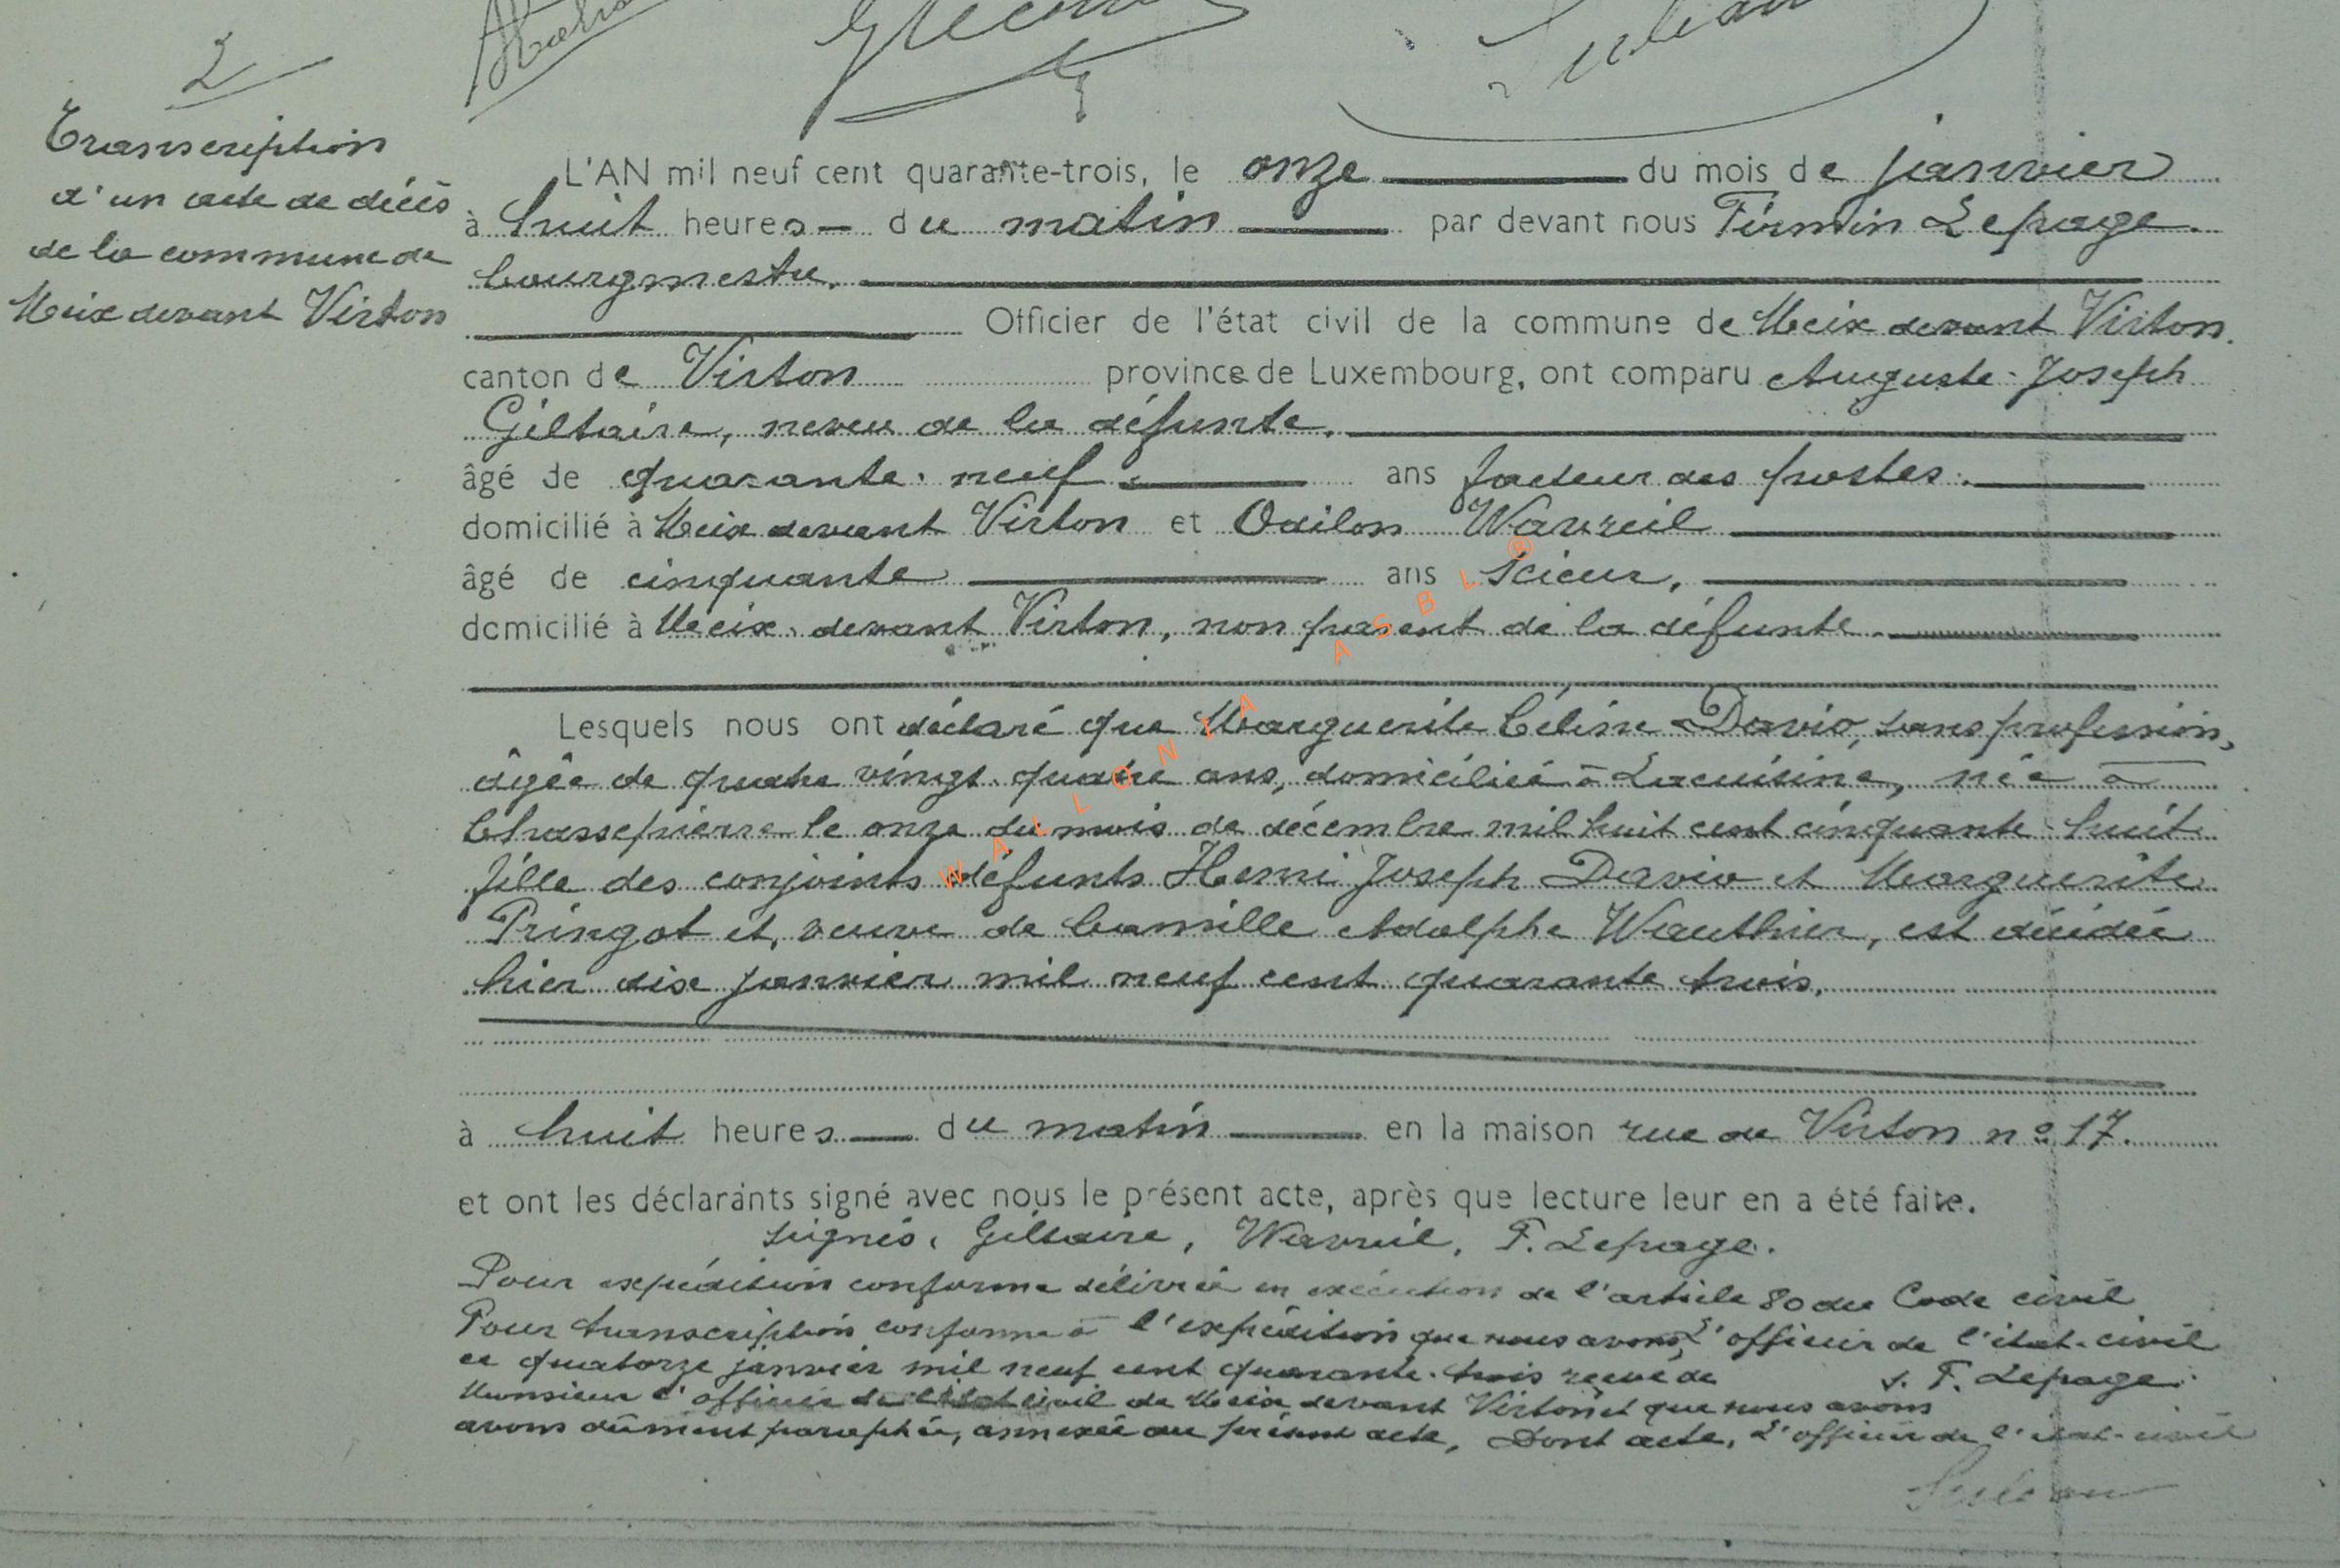 2
Transcription
d'un acte de décès
de la commune de
Meix devant Virton
L'AN mil neuf cent quarante-trois, le onze du mois de janvier
à huit heures du matin par devant nous Firmin Lepage
bourgmestre.
Officier de l'état civil de la commune de Meix devant Virton.
canton de Virton province de Luxembourg, ont comparu Auguste-Joseph
Giltaire, neveu de la défunte,
âgé de quarante-neuf ans facteur des postes.
domicilié à Meix devant Virton et Odilon Wavreil
âgé de cinquante ans scieur,
domicilié à Meix-devant Virton, non parent de la défunte.
Lesquels nous ont déclaré que Marguerite Céline Davio, sans profession,
âgée de quatre vingt-quatre ans, domiciliée à Lacuisine, née à
Chassepierre le onze du mois de décembre mil huit cent cinquante-huit
fille des conjoints défunts Henri Joseph Davio et Marguerite
Pringot et, veuve de Camille Adolphe Wauthier, est décédée
hier dix janvier mil neuf cent quarante trois.
à huit heures du matin en la maison rue de Virton nº 17.
et ont les déclarants signé avec nous le présent acte, après que lecture leur en a été faite.
signés, Giltaire, Wavreil, F. Lepage.
Pour expédition conforme délivrée en exécution de l'article 80 du Code civil
Pour transcription conforme à l'expédition que nous avons, L'officier de l'état-civil
ce quatorze janvier mil neuf cent quarante-trois reçue de s. F. Lepage.
Monsieur l'officier de l'état civil de Meix devant Virton et que nous avons
avons dûment paraphée, annexée au présent acte, Dont acte, L'officier de l'état-civil
WALLONIA ASBL ®